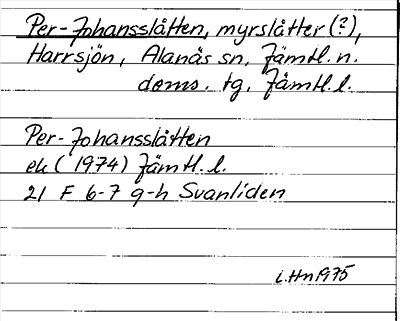 Per-Johansslåtten, myrslåtter (?),
Harrsjön, Alanäs sn, Jämtl. n.
doms. tg, Jämtl. l.
Per-Johansslåtten
ek (1974) Jämtl. l.
21 F 6-7 g-h Svanliden
i.Hn 1975